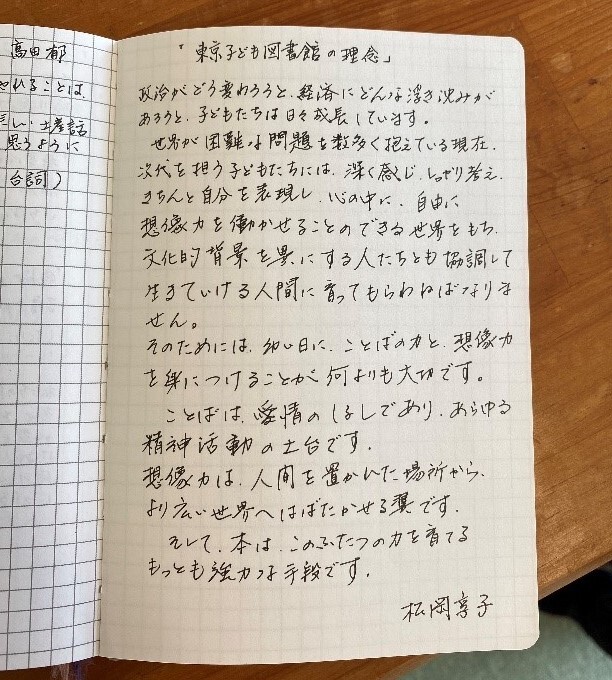 高田郁
れることは、
思うように
台詞)
「東京子ども図書館の理念」
政治がどう変わろうと、経済にどんな浮き沈みが
あろうと、子どもたちは日々成長しています。
世界が困難な問題を数多く抱えている現在、
次代を担う子どもたちには、深く感じ、しっかり考え、
きちんと自分を表現し、心の中に、自由に
想像力を働かせることのできる世界をもち、
文化的背景を異にする人たちとも協調して
生きていける人間に育ってもらわねばなりま
せん。
そのためには、幼い日に、ことばの力と、想像力
を身につけることが何よりも大切です。
ことばは、愛情のしるしであり、あらゆる
精神活動の土台です。
想像力は、人間を置かれた場所から、
より広い世界へはばたかせる翼です。
そして、本は、このふたつの力を育てる
もっとも強力な手段です。
松岡享子